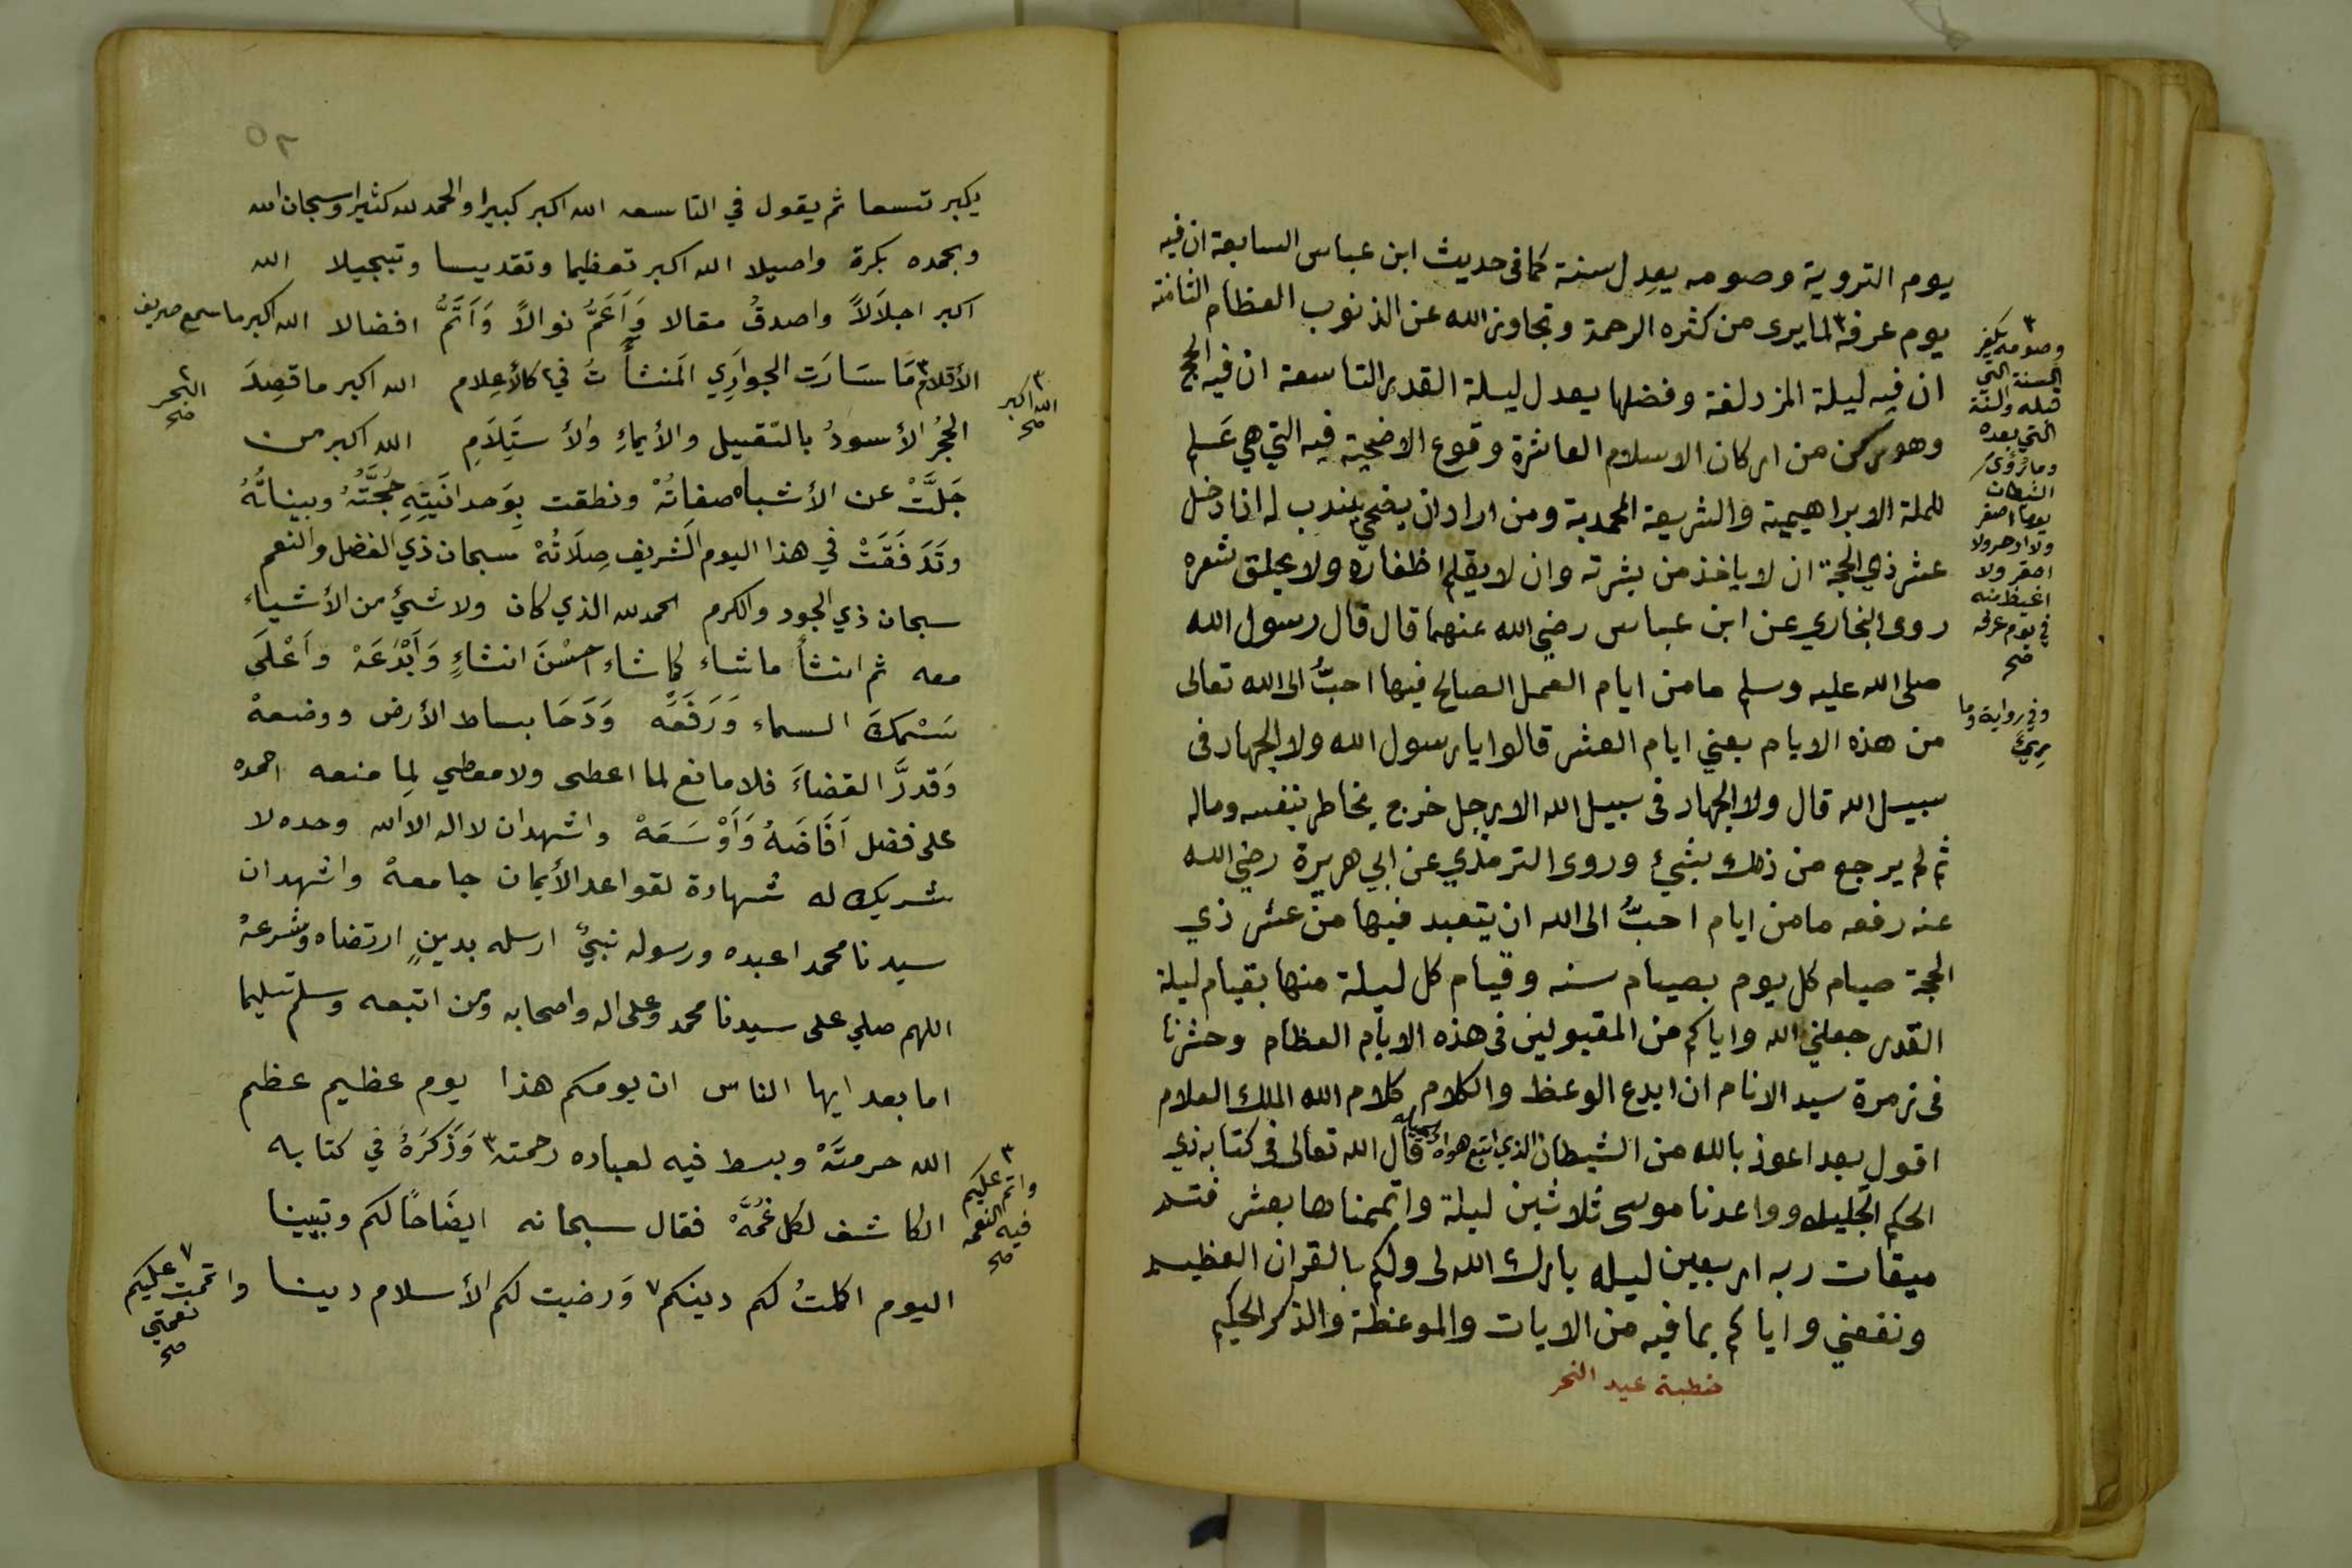 يوم التروية وصومه يعدل سنة كما في حديث ابن عباس السابعة ان فيه
يوم عرفة ٣ لما يرى من كثره الرحمة وتجاوز الله عن الذنوب العظام الثامنة
ان فيه ليلة المزدلفة وفضلها يعدل ليلة القدر التاسعة ان فيه الحج
وهو ركن من اركان الاسلام العاشرة وقوع الاضحية فيه التي هي علم
للملة الابراهيمية والشريعة المحمدية ومن اراد ان يضحي يندب له اذا دخل
عشر ذي الحجة ان لا ياخذ من بشرته وان لا يقلم اظفاره ولا يحلق شعره
روى البخاري عن ابن عباس رضي الله عنهما قال قال رسول الله
صلى الله عليه وسلم ما من ايام العمل الصالح فيها احبُّ الى الله تعالى
من هذه الايام يعني ايام العشر قالوا يا رسول الله ولا الجهاد في
سبيل الله قال ولا الجهاد في سبيل الله الا رجل خرج يخاطر بنفسه وماله
ثم لم يرجع من ذلك بشيء وروى الترمذي عن ابي هريرة رضي الله
عنه رفعه ما من ايام احبُّ الى الله ان يتعبد فيها من عشر ذي
الحجة صيام كل يوم بصيام سنه وقيام كل ليلة منها بقيام ليلة
القدر جعلني الله واياكم من المقبولين في هذه الايام العظام وحشرنا
في زمرة سيد الانام ان ابدع الوعظ والكلام كلام الله الملك العلام
اقول بعد اعوذ بالله من الشيطان الذي اتبع هواه قال الله تعالى في كتابه ذي
الحكم الجليله وواعدنا موسى ثلاثين ليلة واتممناها بعشر فتم
ميقات ربه اربعين ليله بارك الله لي ولكم بالقران العظيم
ونفعني واياكم بما فيه من الايات والموعظة والذكر الحكيم
خطبة عيد النحر
٣
وصومه يكفر
السنة التي
قبله والسنة
التي بعده
وما رؤي
الشيطان
يوما اصغر
ولا ادحر ولا
احقر ولا
اغيظ منه
في يوم عرفه
صح
وفي رواية وما
رئي
٥٢
يكبر تسعا ثم يقول في التاسعه الله اكبر كبيرا والحمد لله كثيرا وسبحان الله
وبحمده بكرة واصيلا الله اكبر تعظيما وتقديسا وتبجيلا الله
اكبر اجلَالاً واصدقُ مقالا وَاَعَمُّ نوالاً وَاَتَمُّ افضالا الله اكبر ما سمع صريف
الأقلام ٣ مَا سَارَت الجوارِي المَنشأَتُ في ٢ كالأعلام الله اكبر ما قصِدَ
الحجُر الأسودُ بالتقبيل والأيماءِ والأستِلَامِ الله اكبر من
جَلَّتْ عن الأشباه صفاتُهْ ونطقت بوَحدانَيتِهِ حُجَّتُهُ وبيناتُهُ
وتَدَفَقَتْ في هذا اليوم الشريف صِلَاتُهْ سبحان ذي الفضل والنعم
سبحان ذي الجود والكرم الحمد لله الذي كان ولا شئ من الأشياء
معه ثم انشأ ما شاء كما شاء احسْنَ انشاءٍ وَاَبْدَعَهْ واَعْلَى
سَمْكَ السماء وَرَفَعَه وَدَحَا بساط الأرض ووضعهْ
وَقدرَّ القضاءَ فلا مانع لما اعطى ولا معطي لِما منعه احمده
على فضل اَفَاضَهُ وَاَوْسَعَهْ واشهد ان لا اله الا الله وحده لا
شريك له شهادة لقواعد الأيمان جامعهْ واشهد ان
سيدنا محمدا عبده ورسوله نبيٌ ارسله بدينٍ ارتضاه وشرعهْ
اللهم صلي على سيدنا محمد وعلى اله واصحابه ومن اتبعه وسلم تسليما
اما بعد ايها الناس ان يومكم هذا يوم عظيم عظم
الله حرمتَهْ وبسط فيه لعباده رحمته ٣ وَذَكَرَهُ في كتابه
الكاشف لكل غُمَّهْ فقال سبحانه ايضَاحًا لكم وتبيينا
اليوم اكملتُ لكم دينكم ٧ وَرضيت لكم الأسلام دينا
٣
الله اكبر
صح
٢
البحر
صح
٣
واتم عليكم
فيه النعمه
صح
٧
واتممت عليكم
نعمتي
صح